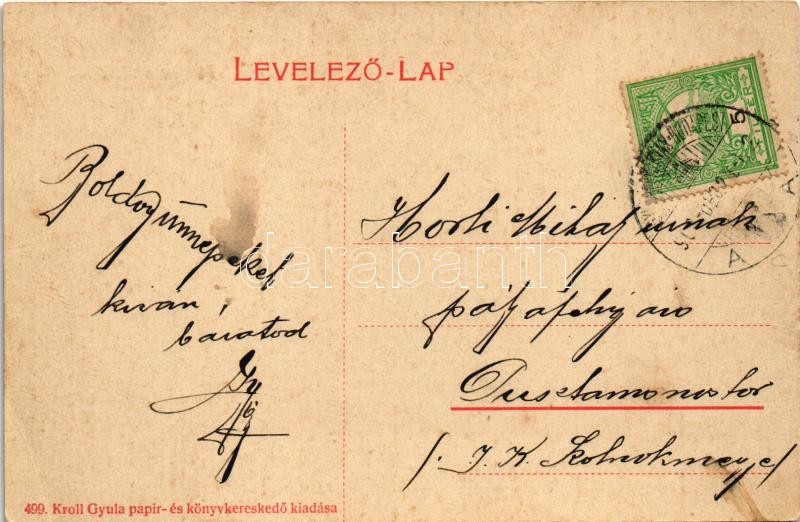 LEVELEZŐ-LAP
Boldog ünnepeket
kiván,
baratod
Horti Mihaj urnak
Pusztamonostor
J. K. Szolnokmegye
499. Kroll Gyula papir- és könyvkereskedő kiadása
darabanth